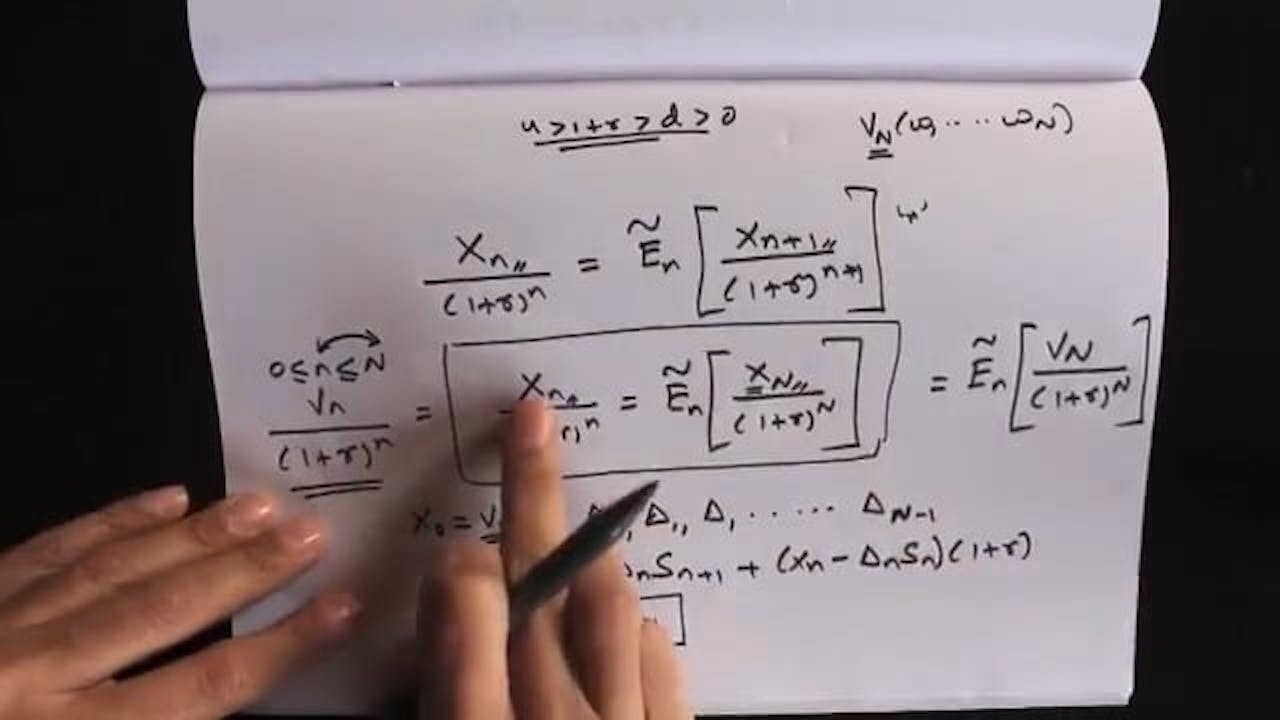 u > 1+r > d > 0    V_N(ω, .... ω_N)
X_n / (1+r)^n = Ẽ_n [ X_{n+1} / (1+r)^{n+1} ]
0 ≤ n ≤ N
V_n / (1+r)^n = X_n / r)^n = Ẽ_n [ X_N / (1+r)^N ] = Ẽ_n [ V_N / (1+r)^N ]
X_0 = V Δ_1, Δ, ..... Δ_{N-1}
Δ_n S_{n+1} + (X_n - Δ_n S_n)(1+r)